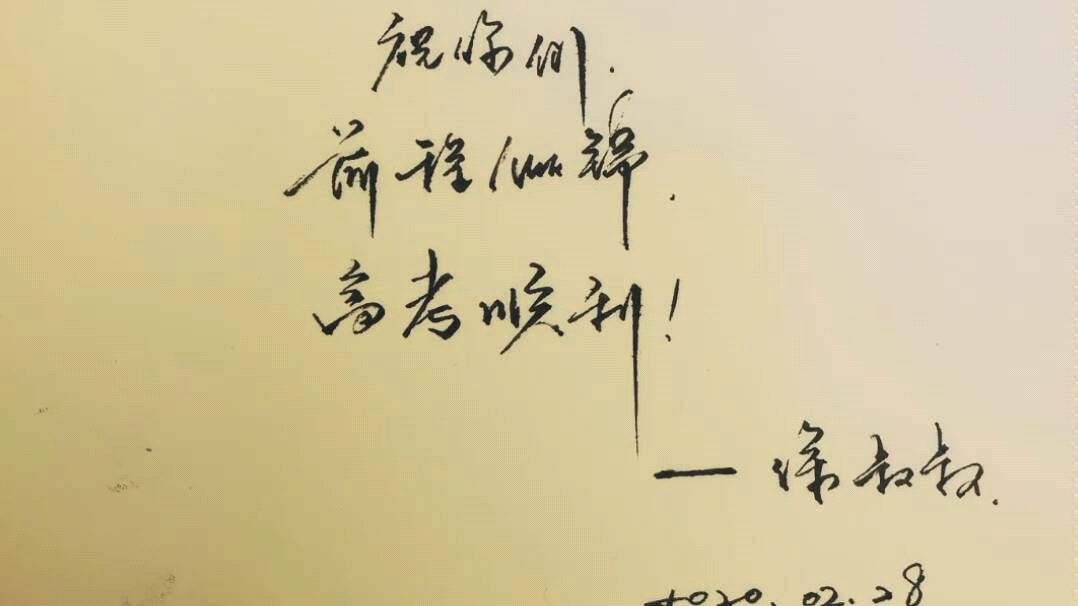 祝你们.
前程似锦.
高考顺利!
— 徐叔叔.
2020.02.28